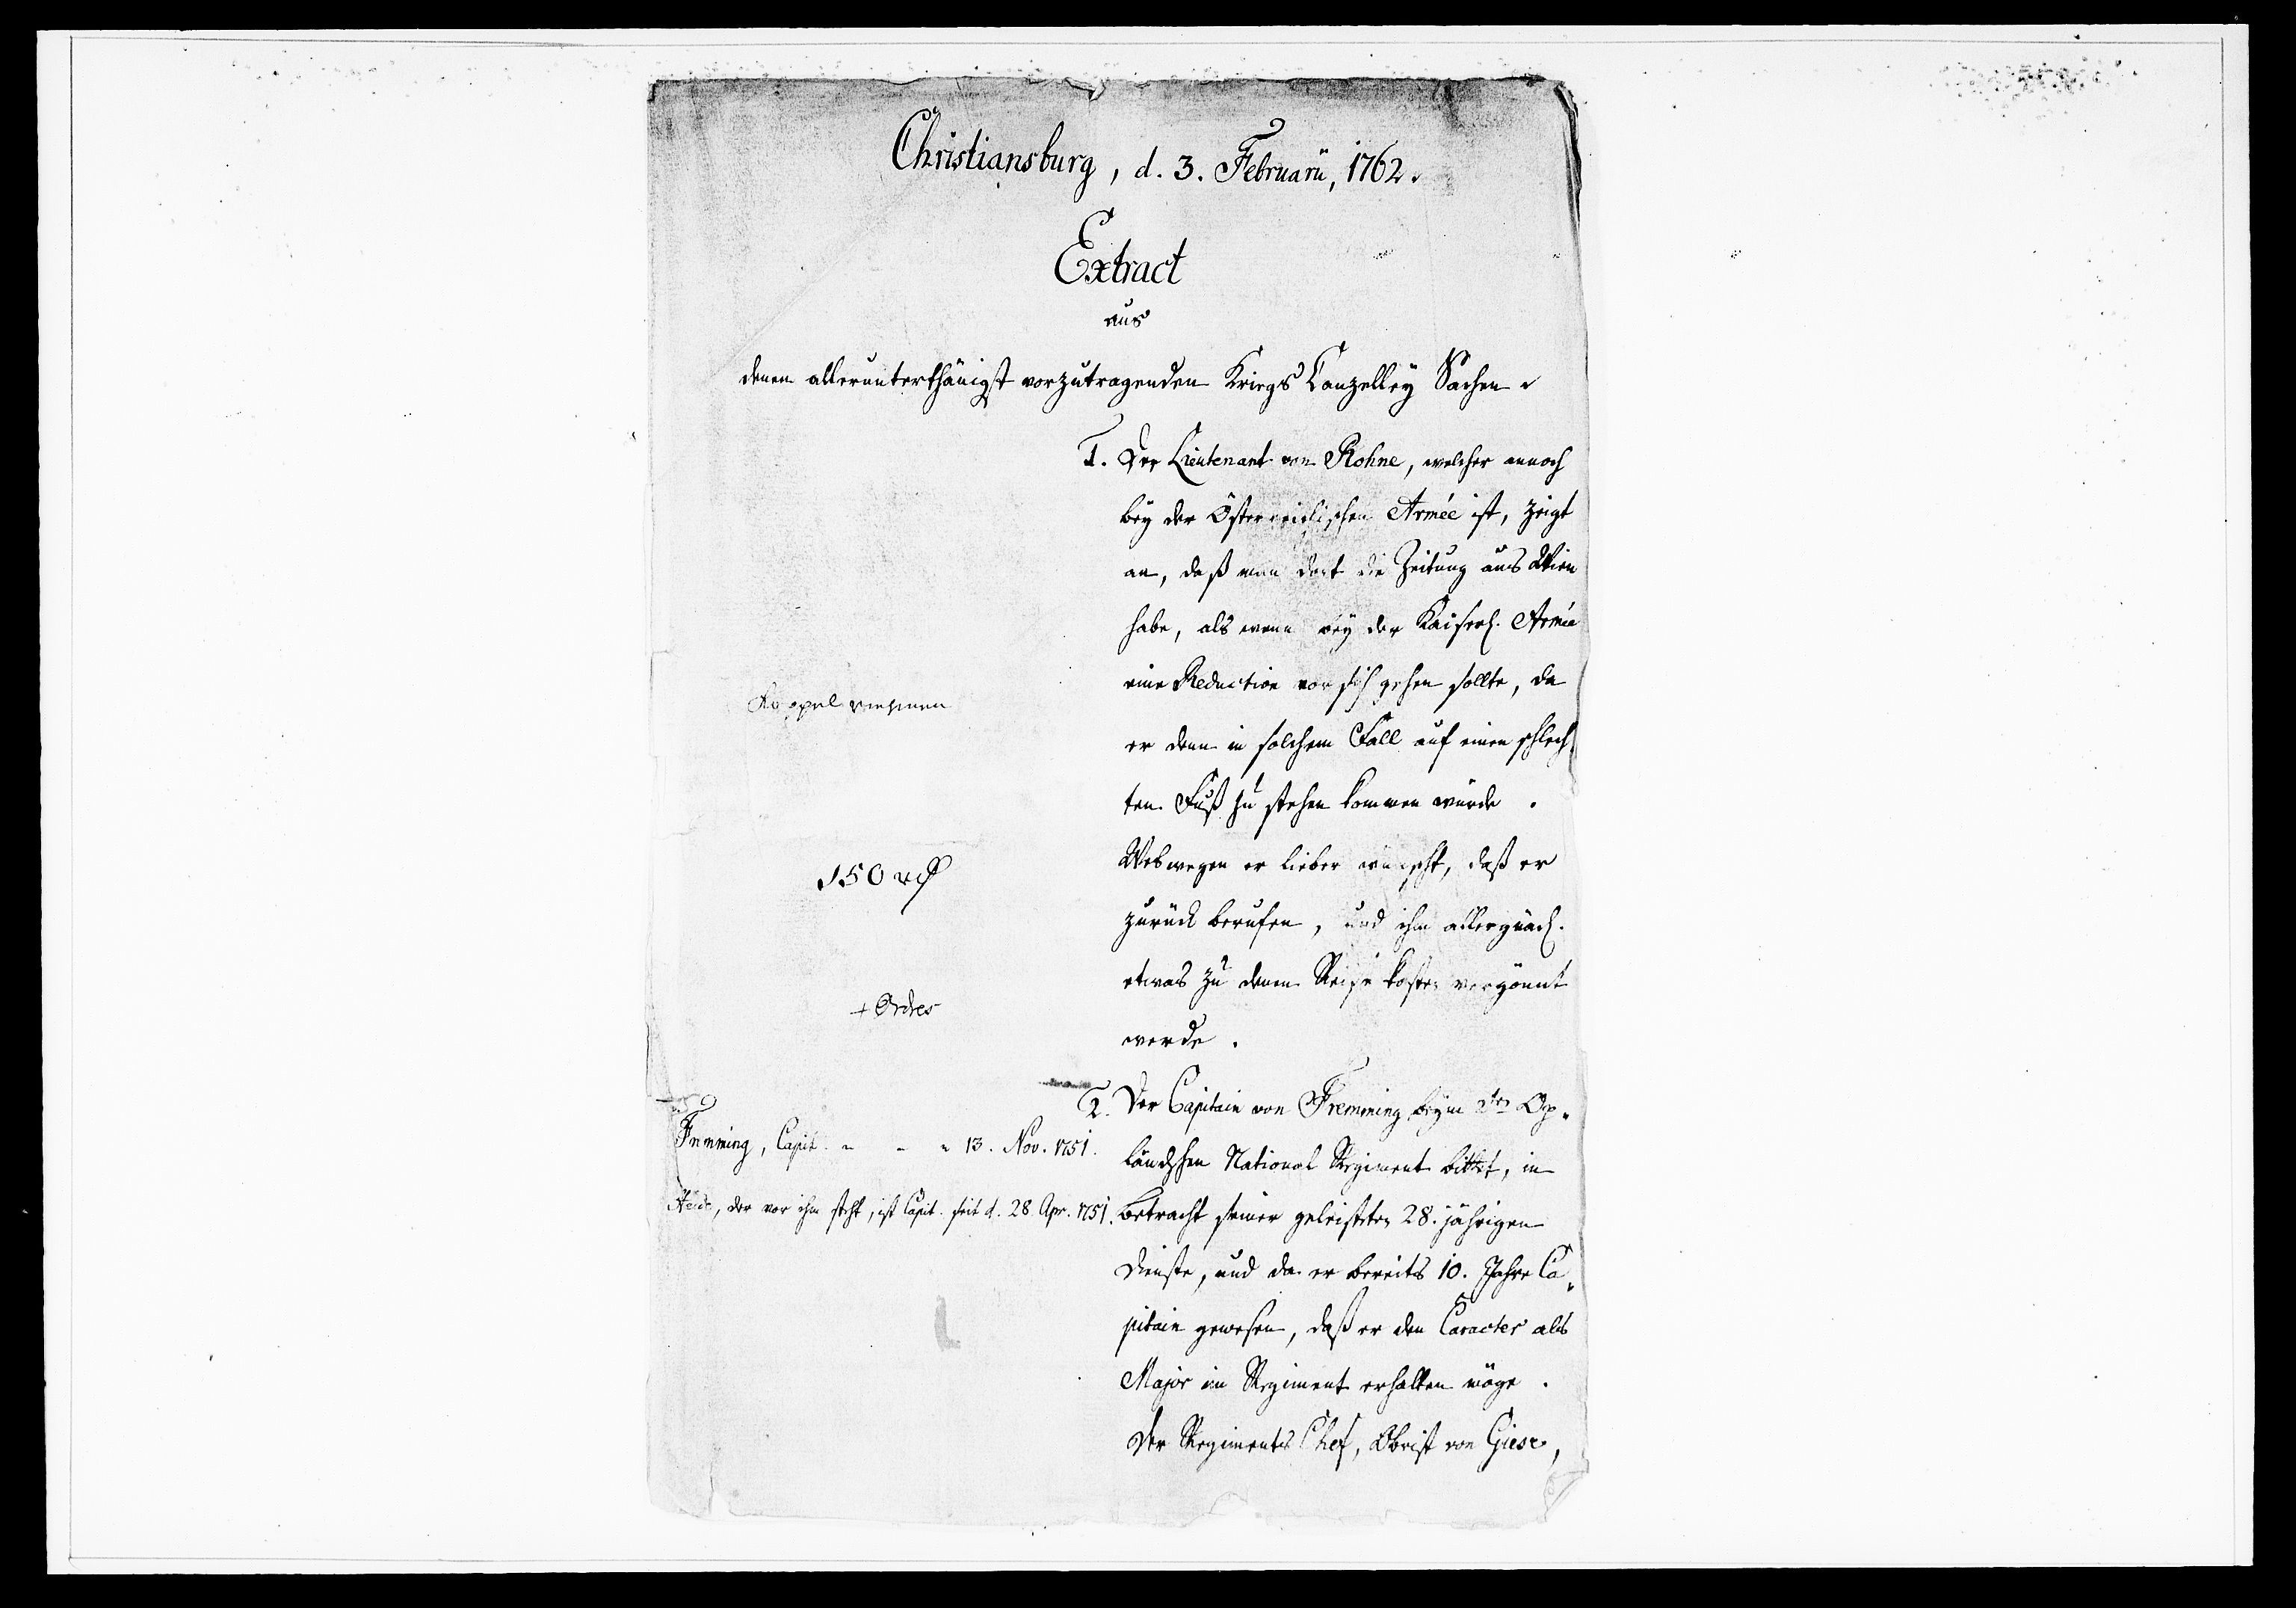 Christiansburg, d. 3. Februarii, 1762.
Extract
aus
denen allerunterthänigst vorzutragenden Kriegs Canzelley Sachen.
1. Der Lieutenant von Rohne, welcher annoch
bey der Österreichischen Armée ist, zeigt
an, daß man dort die Zeitung aus Wien
habe, als wenn bey der Kaiserl. Armée
eine Reduction vor sich gehen sollte, da
er denn in solchem Fall auf einen schlech
ten Fuß zu stehen kommen würde.
Weswegen er lieber wünscht, daß er
150 rth
zurück berufen, und ihm allergnäd.
etwas zu denen Reise kosten vergönnt
+ Ordres
werde.
2. Der Capitain von Fremming beym 2ten Op„
Fremming, Capit. „ „ „ 13. Nov. 1751.
ländschen National Regiment bittet, in
der vor ihm steht, ist Capit. seit d. 28 Apr. 1751.
Betracht seiner geleisteten 28. jährigen
Dienste, und da er bereits 10. Jahre Ca„
pitain gewesen, daß er den Caracter als
Major im Regiment erhalten möge.
Der Regiments Chef, Obrist von Giese,